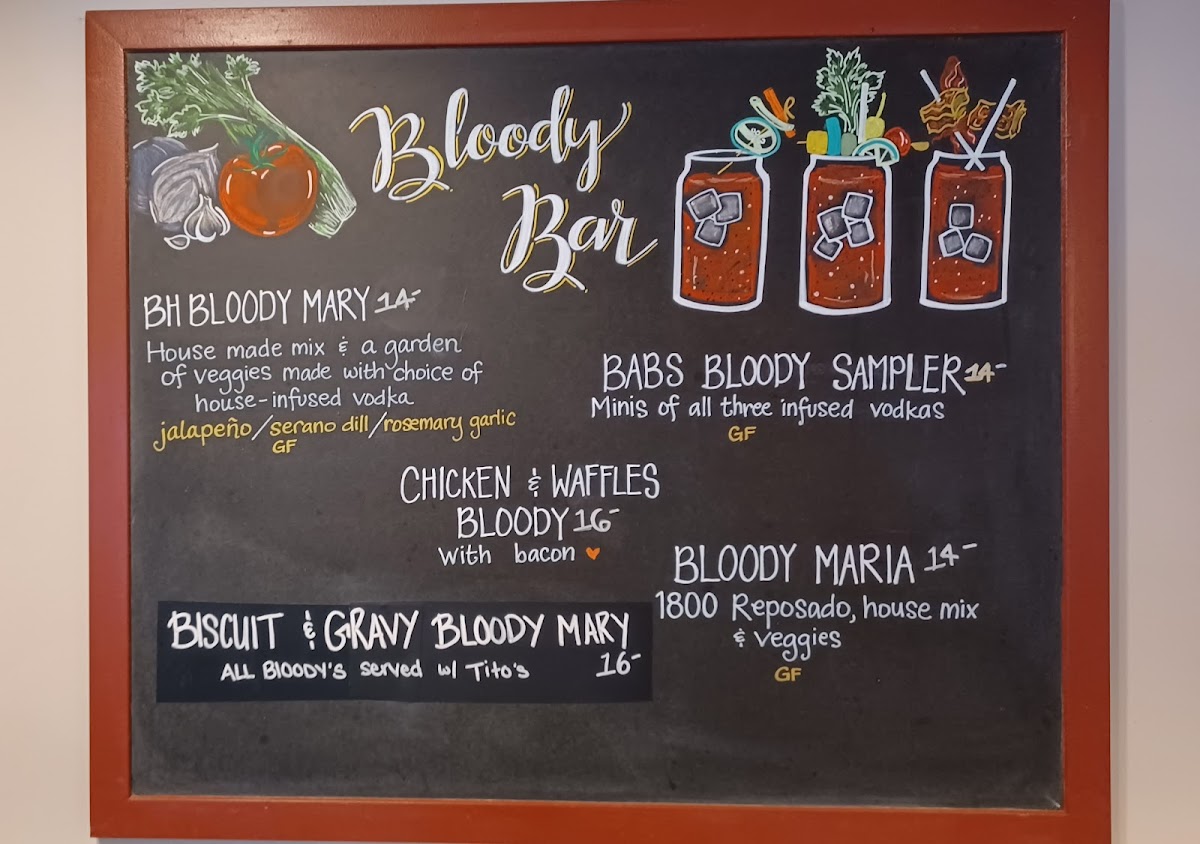 Bloody
Bar
BH BLOODY MARY 14-
House made mix & a garden
of veggies made with choice of
house-infused vodka
jalapeño/serano dill/rosemary garlic
GF
BABS BLOODY SAMPLER 14-
Minis of all three infused vodkas
GF
CHICKEN & WAFFLES
BLOODY 16-
with bacon
BLOODY MARIA 14-
1800 Reposado, house mix
& veggies
GF
BISCUIT & GRAVY BLOODY MARY
ALL BLOODY'S served w/ Tito's 16-